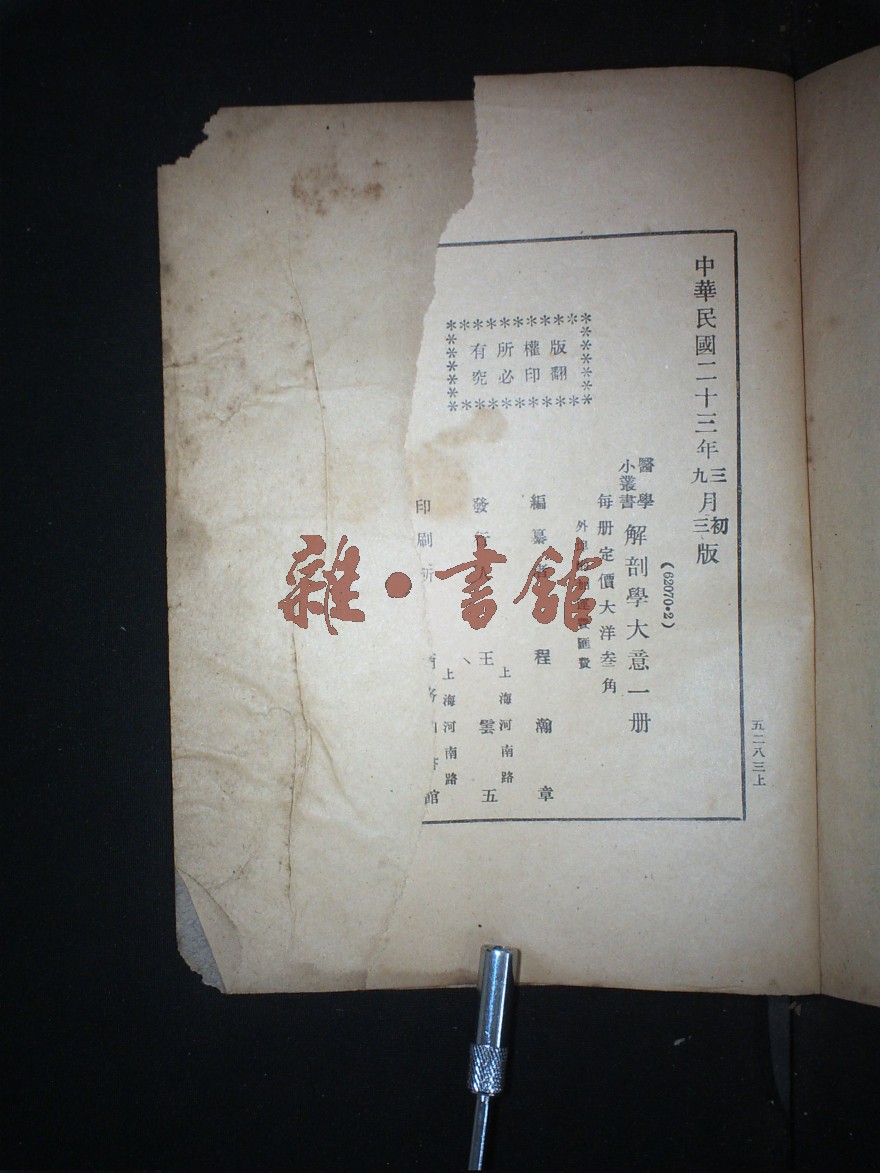 中華民國二十三年三月初版
九三
醫學
小叢書
解剖學大意一册
(62070•2)
每册定價大洋叁角
外埠酌加運費匯費
版權所有
翻印必究
編纂者 程瀚章
發行人 王雲五
上海河南路
印刷所
上海河南路
館
五二八三上
雜•書館